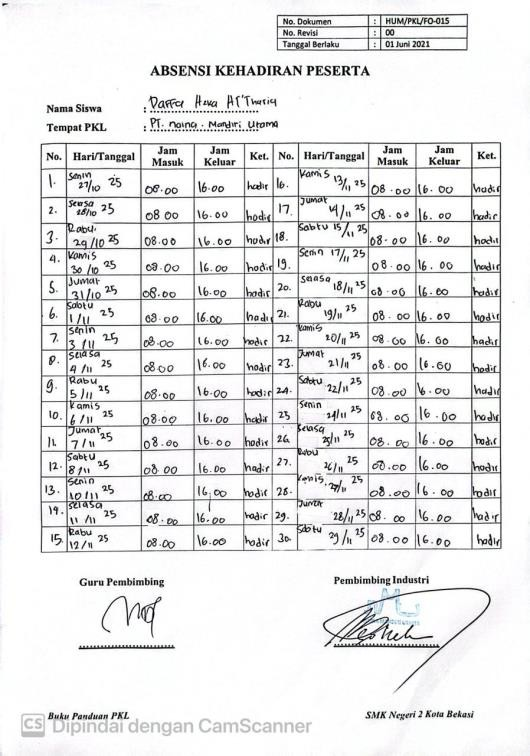 No. Dokumen : HUM/PKL/FO-015
No. Revisi : 00
Tanggal Berlaku : 01 Juni 2021
ABSENSI KEHADIRAN PESERTA
Nama Siswa : Daffa
Tempat PKL : PT. Naina. Mandiri Utama
No. Hari/Tanggal Jam Masuk Jam Keluar Ket. No. Hari/Tanggal Jam Masuk Jam Keluar Ket.
1. Senin 27/10 25 08.00 16.00 hadir 16. Kamis 13/11 25 08.00 16.00 hadir
2. Selasa 28/10 25 08 00 16.00 hadir 17. Jumat 14/11 25 08.00 16.00 hadir
3. Rabu 29/10 25 08.00 16.00 hadir 18. Sabtu 15/11 25 08.00 16.00 hadir
4. Kamis 30/10 25 08.00 16.00 hadir 19. Senin 17/11 25 08.00 16.00 hadir
5. Jumat 31/10 25 08.00 16.00 hadir 20. Selasa 18/11 25 08.00 16.00 hadir
6. Sabtu 1/11 25 08.00 16.00 hadir 21. Rabu 19/11 25 08.00 16.00 hadir
7. Senin 3/11 25 08.00 16.00 hadir 22. Kamis 20/11 25 08.00 16.00 hadir
8. Selasa 4/11 25 08.00 16.00 hadir 23. Jumat 21/11 25 08.00 16.00 hadir
9. Rabu 5/11 25 08.00 16.00 hadir 24. Sabtu 22/11 25 08.00 16.00 hadir
10. Kamis 6/11 25 08.00 16.00 hadir 25 Senin 24/11 25 08.00 16.00 hadir
11. Jumat 7/11 25 08.00 16.00 hadir 26. Selasa 25/11 25 08.00 16.00 hadir
12. Sabtu 8/11 25 08.00 16.00 hadir 27. Rabu 26/11 25 08.00 16.00 hadir
13. Senin 10/11 25 08.00 16.00 hadir 28. Kamis 27/11 25 08.00 16.00 hadir
14. Selasa 11/11 25 08.00 16.00 hadir 29. Jumat 28/11 25 08.00 16.00 hadir
15. Rabu 12/11 25 08.00 16.00 hadir 30. Sabtu 29/11 25 08.00 16.00 hadir
Guru Pembimbing Pembimbing Industri
Buku Panduan PKL SMK Negeri 2 Kota Bekasi
CS Dipindai dengan CamScanner